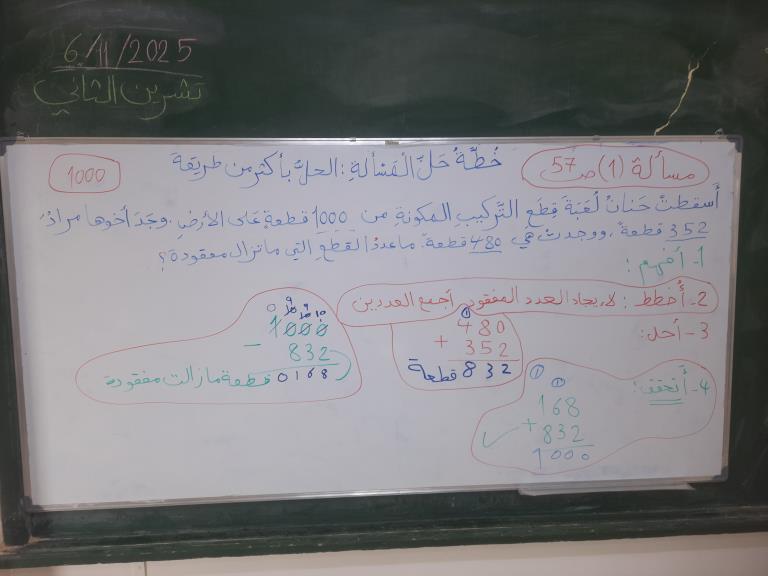 6/11/2025
تشرين الثاني
مسألة (1) ص 57
خُطَّةُ حَلَّ الْمَسْأَلَةِ: الحلُّ بأكثر من طريقة
1000
أَسقطتْ حَنانُ لُعْبَةَ قِطَعِ التَّركيبِ المكونةِ من 1000 قطعةٍ عَلى الأرضِ. وجَدَ أخوها مرادُ
352 قطعةً، ووجدتْ هي 480 قطعةً. ماعددُ القطعِ التي ماتزال مفقودة؟
1- أفهم:
2- أُخطط: لإيجاد العدد المفقود أجمع العددين
3- أحل:
1
480
+ 352
832 قطعة
0 9 9 10
10 10
1000
- 832
0168 قطعة مازالت مفقودة
4- أتحقق:
1 1
168
+ 832
1000